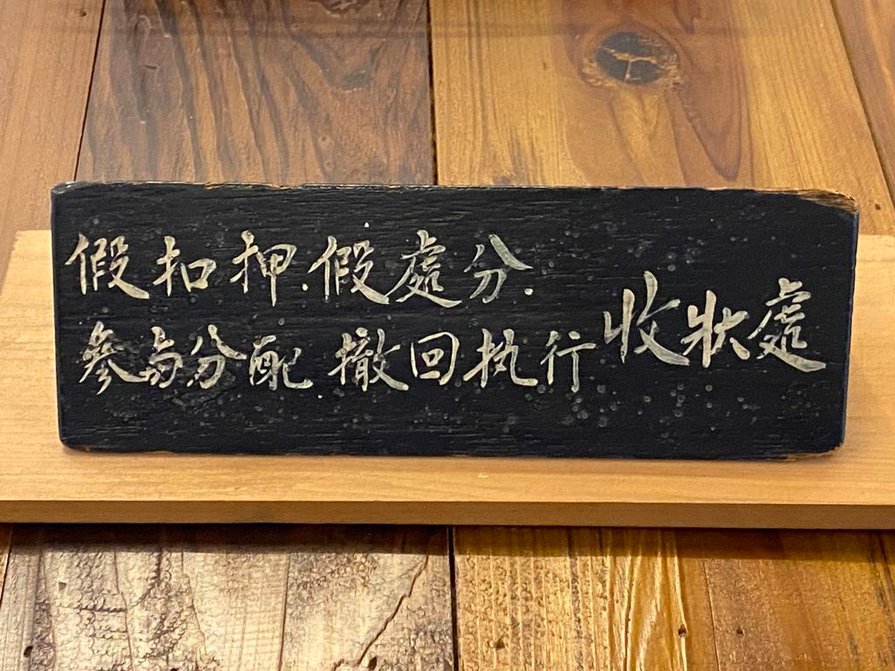 假扣押.假處分.
參与分配 撤回执行
收狀處